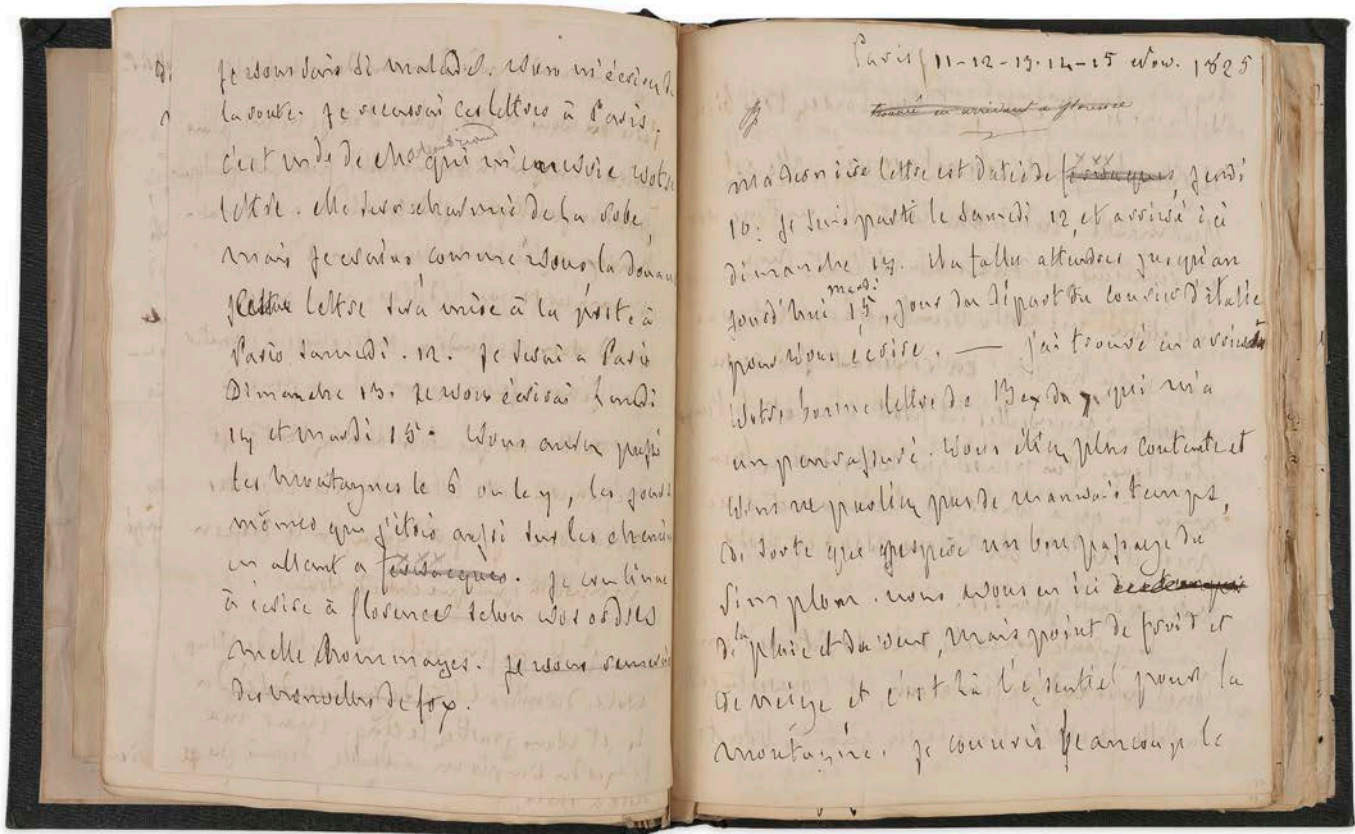 Je vous savois si malade. vous m'écrivez de
la route. Je recevrai ces lettres à Paris.
c'est mde de qui m'envoie votre
lettre. elle sera charmée de la robe,
mais je crains comme vous la douane
lettre sera mise à la poste à
Paris samedi. 12. Je serai a Paris
Dimanche 13. Je vous écrirai Lundi
14 et mardi 15. vous aurez passé
les montagnes le 6 ou le 7, les jours
mêmes que j'étois aussi sur les chemins
en allant a . Je continue
à écrire à florence selon vos ordres
mille hommages. Je vous remercie
des nouvelles de fox.
Paris 11-12-13-14-15 Nov. 1825
trouvé en arrivant a florence
ma dernière lettre est datée de , jeudi
10. Je suis parti le samedi 12, et arrivé ici
dimanche 13. il a fallu attendre jusqu'au
jourd'hui mardi 15, jour du départ du courier d'italie
pour vous écrire. — j'ai trouvé en arrivant
votre bonne lettre de Bex du 7 qui m'a
un peu rassuré. vous étiez plus contente et
vous ne parliez pas de mauvais temps,
de sorte que j'espère un bon passage du
simplon. nous avons eu ici
de la pluie et du vent, mais point de froid et
de neige et c'est là l'essentiel pour la
montagne. je connois beaucoup le